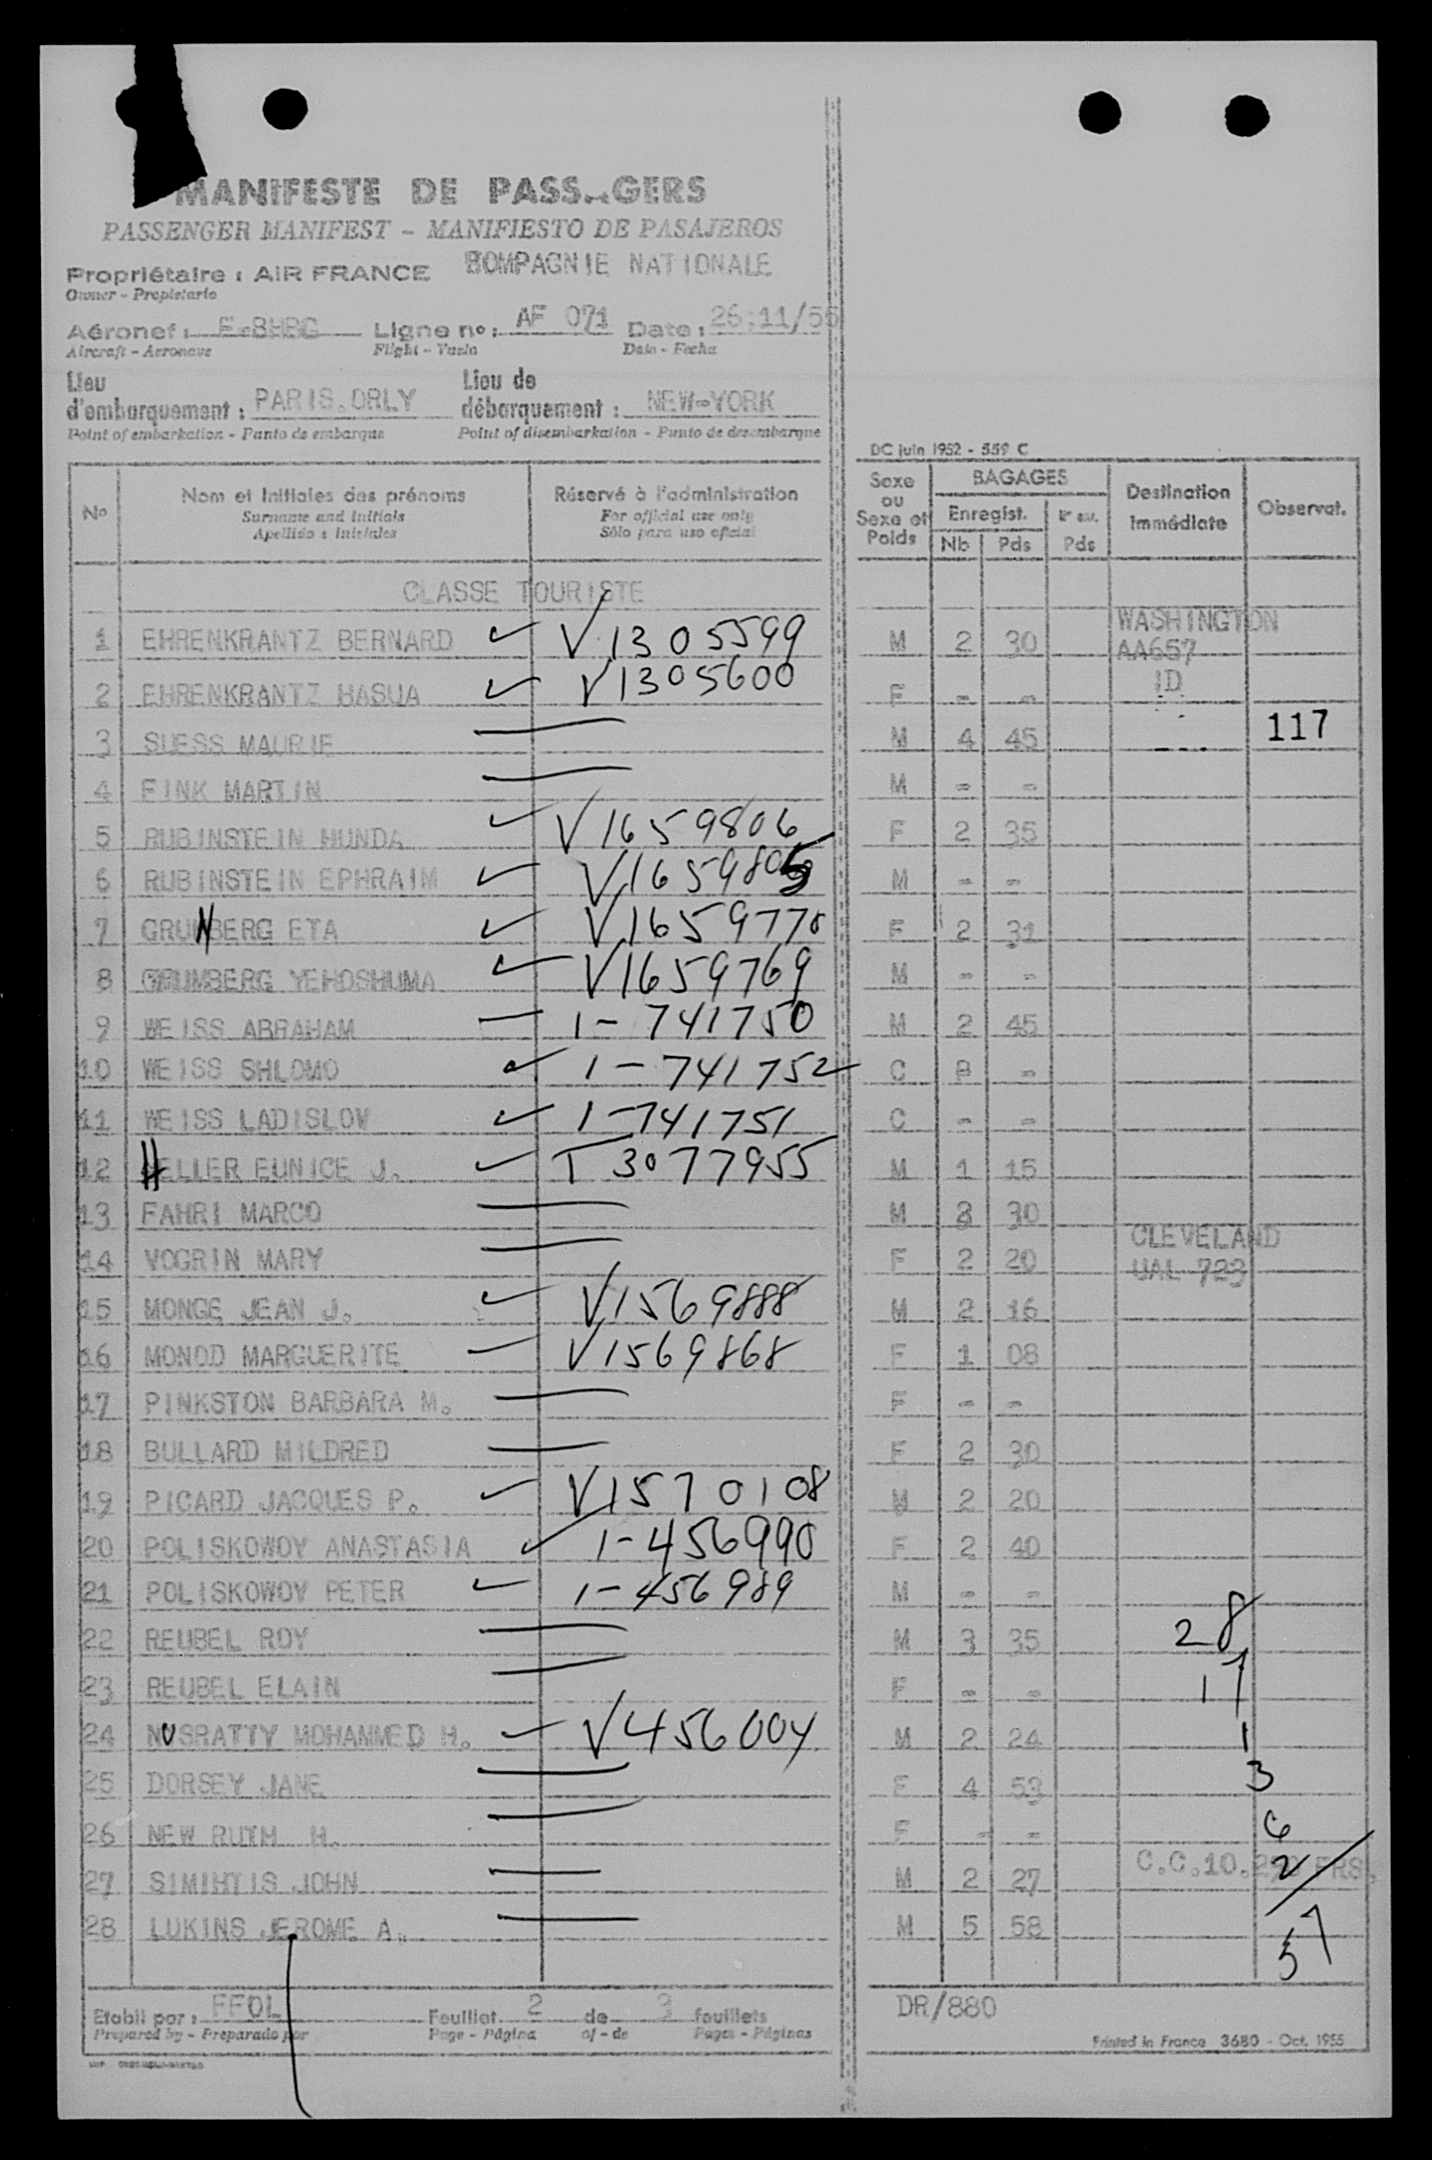 MANIFESTE DE PASSAGERS
PASSENGER MANIFEST - MANIFIESTO DE PASAJEROS
Propriétaire : AIR FRANCE BOMPAGNIE NATIONALE
Owner - Propietario
Aéronef : F-BHBG Ligne no : AF 071 Date : 26:11/56
Aircraft - Aeronave Flight - Vuelo Date - Fecha
Lieu d'embarquement : PARIS.ORLY Lieu de débarquement : NEW-YORK
Point of embarkation - Punto de embarque Point of disembarkation - Punto de desembarque
DC juin 1952 - 559 C
No Nom et initiales des prénoms Réservé à l'administration Sexe ou Sexe et Poids BAGAGES Destination immédiate Observat.
Surname and initials For official use only Enregist.
Apellido e iniciales Sólo para uso oficial Nb Pds Pds
CLASSE TOURISTE
WASHINGTON
1 EHRENKRANTZ BERNARD ✓ V 1305599 M 2 30 AA657
2 EHRENKRANTZ BASUA ✓ V1305600 F - - ID
3 SUESS MAURIE — M 4 45 117
4 FINK MARTIN — M - -
5 RUBINSTEIN HUNDA ✓ V 1659806 F 2 35
6 RUBINSTEIN EPHRAIM ✓ V1659805 M - -
7 GRUNBERG ETA ✓ V1659770 F 2 31
8 GRUMBERG YEHOSHUMA ✓ V1659769 M - -
9 WEISS ABRAHAM — 1-741750 M 2 45
10 WEISS SHLOMO ✓ 1-741752 C - -
11 WEISS LADISLOV ✓ 1-741751 C - -
12 HELLER EUNICE J. ✓ T 3077955 M 1 15
13 FAHRI MARCO — M 3 30
CLEVELAND
14 VOGRIN MARY — F 2 20 UAL 723
15 MONGE JEAN J. ✓ V1569888 M 2 16
16 MONOD MARGUERITE — V1569868 F 1 08
17 PINKSTON BARBARA M. — F - -
18 BULLARD MILDRED — F 2 30
19 PICARD JACQUES P. ✓ V1570108 M 2 20
20 POLISKOWOY ANASTASIA ✓ 1-456990 F 2 40
21 POLISKOWOY PETER ✓ 1-456989 M - -
22 REUBEL ROY — M 3 35 28
23 REUBEL ELAIN — F - - 17
24 NUSRATTY MOHAMMED H. ✓ V456004 M 2 24 1
25 DORSEY JANE — F 4 53 3
26 NEW RUTH H. — F - - 6
27 SIMIHTIS JOHN — M 2 27 C.C.10. FRS. 2
28 LUKINS JEROME A. — M 5 58 57
Etabli par : FFOL Feuillet 2 de 3 feuillets DR/880
Prepared by - Preparado por Page - Página of - de Pages - Páginas
Printed in France 3680 - Oct. 1955